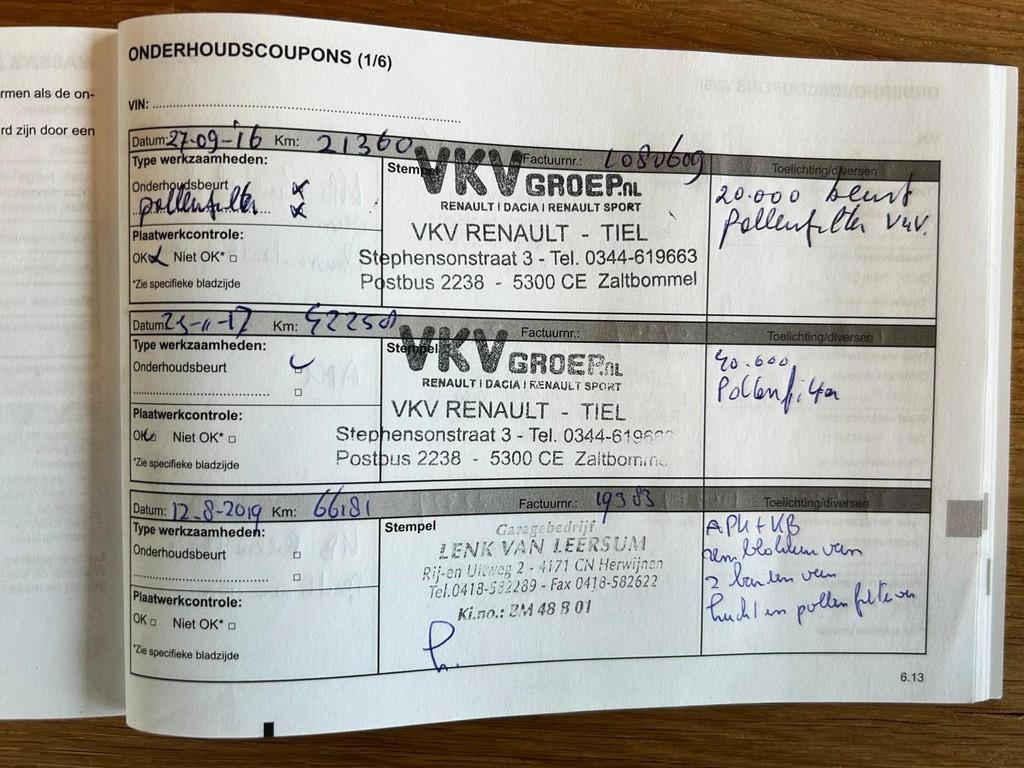 rmen als de on-
rd zijn door een
ONDERHOUDSCOUPONS (1/6)
VIN:
Datum: 27-09-'16 Km: 21360 Factuurnr.: 1080609 Toelichting/diversen
Type werkzaamheden:
Onderhoudsbeurt x
pollenfilter x
Plaatwerkcontrole:
OK Niet OK*
*Zie specifieke bladzijde
Stempel
VKV GROEP.NL
RENAULT | DACIA | RENAULT SPORT
VKV RENAULT - TIEL
Stephensonstraat 3 - Tel. 0344-619663
Postbus 2238 - 5300 CE Zaltbommel
20.000 beurt
pollenfilter vnv.
Datum: 23-11-17 Km: Factuurnr.: Toelichting/diversen
Type werkzaamheden:
Onderhoudsbeurt
Plaatwerkcontrole:
OK Niet OK*
*Zie specifieke bladzijde
Stempel
VKV GROEP.NL
RENAULT | DACIA | RENAULT SPORT
VKV RENAULT - TIEL
Stephensonstraat 3 - Tel. 0344-6196
Postbus 2238 - 5300 CE Zaltbomm
40.000
Pollenfilter
Datum: 12-8-2019 Km: 66181 Factuurnr.: 19383 Toelichting/diversen
Type werkzaamheden:
Onderhoudsbeurt
Plaatwerkcontrole:
OK Niet OK*
*Zie specifieke bladzijde
Stempel
Garagebedrijf
LENK VAN LEERSUM
Rij-en Uitweg 2 - 4171 CN Herwijnen
Tel.0418-582289 - Fax 0418-582622
Ki.no.: BM 48 B 01
APK + KB
remblokken van
2 banden
lucht en pollenfilter
6.13